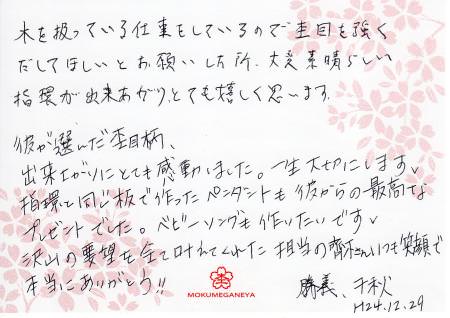 木を扱っている仕事をしているので杢目を強く
だしてほしいとお願いした所、大変素晴らしい
指環が出来あがり、とても嬉しく思います。
彼が選んだ杢目柄、
出来上がりにとても感動しました。一生大切にします。
指環と同じ板で作ったペンダントも彼からの最高な
プレゼントでした。ベビーリングも作りたいです。
沢山の要望を全て叶えてくれた担当の齊木さんいつも笑顔で
本当にありがとう!!
MOKUMEGANEYA
勝義、千秋
H24.12.29